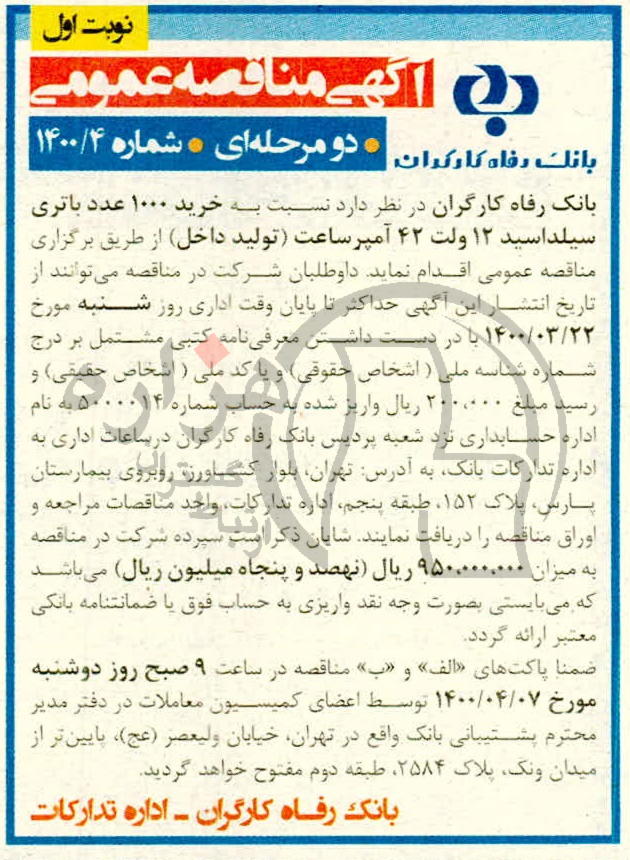 نوبت اول
آگهی مناقصه عمومی
دو مرحله‌ای • شماره ۱۴۰۰/۴
بانک رفاه کارگران
بانک رفاه کارگران در نظر دارد نسبت به خرید ۱۰۰۰ عدد باتری
سیلداسید ۱۲ ولت ۴۲ آمپرساعت (تولید داخل) از طریق برگزاری
مناقصه عمومی اقدام نماید. داوطلبان شرکت در مناقصه می‌توانند از
تاریخ انتشار این آگهی حداکثر تا پایان وقت اداری روز شنبه مورخ
۱۴۰۰/۰۳/۲۲ با در دست داشتن معرفی‌نامه کتبی مشتمل بر درج
شماره شناسه ملی ( اشخاص حقوقی) و یا کد ملی ( اشخاص حقیقی) و
رسید مبلغ ۲۰۰،۰۰۰ ریال واریز شده به حساب شماره ۵۰۰۰۰۱۴ به نام
اداره حسابداری نزد شعبه پردیس بانک رفاه کارگران درساعات اداری به
اداره تدارکات بانک، به آدرس: تهران، بلوار کشاورز، روبروی بیمارستان
پارس، پلاک ۱۵۲، طبقه پنجم، اداره تدارکات، واحد مناقصات مراجعه و
اوراق مناقصه را دریافت نمایند. شایان ذکراست سپرده شرکت در مناقصه
به میزان ۹۵۰،۰۰۰،۰۰۰ ریال (نهصد و پنجاه میلیون ریال) می‌باشد
که می‌بایستی بصورت وجه نقد واریزی به حساب فوق یا ضمانتنامه بانکی
معتبر ارائه گردد.
ضمنا پاکت‌های «الف» و «ب» مناقصه در ساعت ۹ صبح روز دوشنبه
مورخ ۱۴۰۰/۰۴/۰۷ توسط اعضای کمیسیون معاملات در دفتر مدیر
محترم پشتیبانی بانک واقع در تهران، خیابان ولیعصر (عج)، پایین‌تر از
میدان ونک، پلاک ۲۵۸۴، طبقه دوم مفتوح خواهد گردید.
بانک رفاه کارگران - اداره تدارکات
هزاره